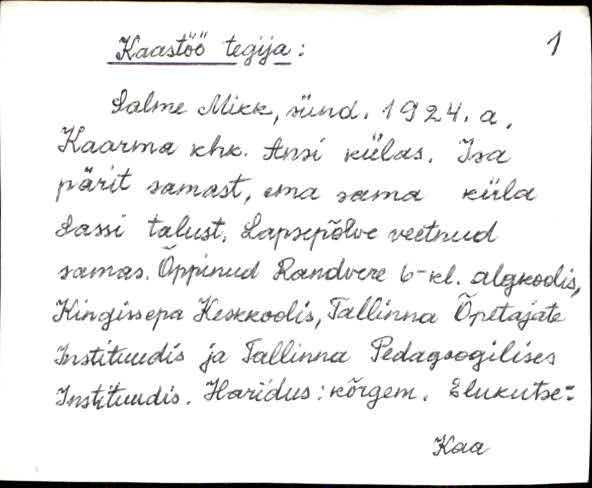 Kaastöö tegija:
1
Salme Mikk, sünd. 1924. a.
Kaarma khk. Ansi külas. Isa
pärit samast, ema sama küla
Sassi talust. Lapsepõlve veetnud
samas. Õppinud Randvere 6-kl. algkoolis,
Kingissepa Keskkoolis, Tallinna Õpetajate
Instituudis ja Tallinna Pedagoogilises
Instituudis. Haridus: kõrgem. Elukutse-
Kaa